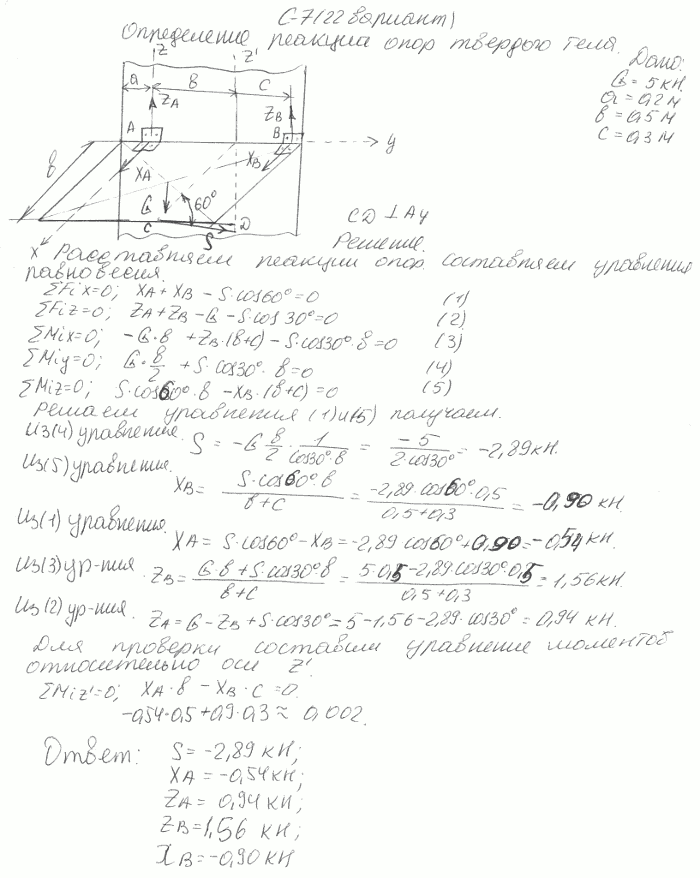 С-7 (22 вариант)
Определение реакции опор твердого тела.
Дано:
G = 5 кН.
a = 0,2 м
в = 0,5 м
c = 0,3 м
Z Z'
a в c
ZA ZB
A B y
в XA XB
G 60°
C D
S
X
CD ⊥ Ay
Решение.
Расставляем реакции опор. Составляем уравнения
равновесия.
ΣFix=0; XA + XB – S·cos60° = 0 (1)
ΣFiz=0; ZA + ZB – G – S·cos30° = 0 (2)
ΣMix=0; –G·в + ZB·(в+c) – S·cos30°·в = 0 (3)
ΣMiy=0; G·в/2 + S·cos30°·в = 0 (4)
ΣMiz=0; S·cos60°·в – XB·(в+c) = 0 (5)
Решаем уравнения (1)и(5) получаем.
Из(4) уравнение. S = –G в/2 · 1/(cos30°·в) = –5/(2·cos30°) = –2,89 кН.
Из(5) уравнение. XB = S·cos60°·в/(в+c) = –2,89·cos60°·0,5/(0,5+0,3) = –0,90 кН.
Из(1) уравнение. XA = S·cos60° – XB = –2,89 cos60° + 0,90 = –0,54 кН.
Из(3) ур-ния. ZB = G·в + S·cos30°в/(в+c) = 5·0,5 – 2,89 cos30° 0,5/(0,5+0,3) = 1,56 кН.
Из(2) ур-ния. ZA = G – ZB + S·cos30° = 5 – 1,56 – 2,89·cos30° = 0,94 кН.
Для проверки составим уравнение моментов
относительно оси Z'.
ΣMiz'=0; XA·в – XB·c = 0.
–0,54·0,5 + 0,9·0,3 ≈ 0,002.
Ответ: S = –2,89 кН;
XA = –0,54 кН;
ZA = 0,94 кН;
ZB = 1,56 кН;
XB = –0,90 кН